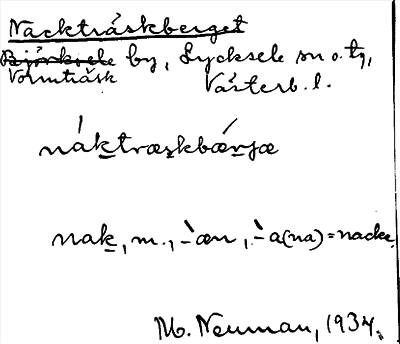 Nackträskberget
Björksele by, Lycksele sn o. tg,
Vormträsk Västerb. l.
náktræskbǽrjæ
nak, m., -̀æn, -̀a(na) = nacke.
M. Neuman, 1934.